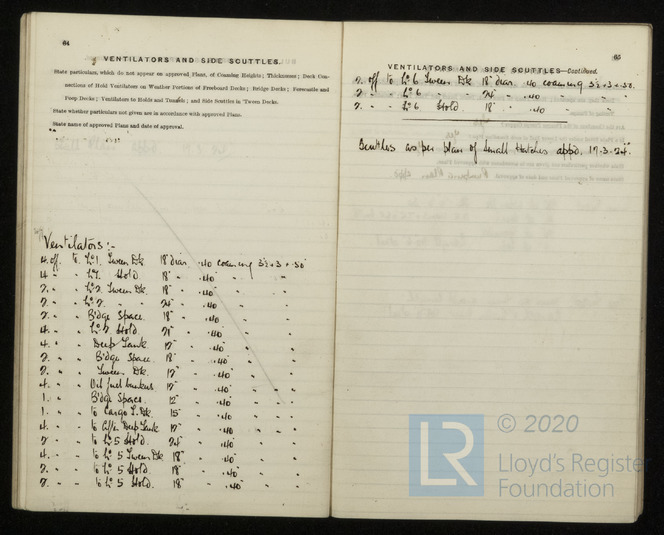 64
VENTILATORS AND SIDE SCUTTLES.
State particulars, which do not appear on approved Plans, of Coaming Heights; Thicknesses; Deck Con-
nections of Hold Ventilators on Weather Portions of Freeboard Decks; Bridge Decks; Forecastle and
Poop Decks; Ventilators to Holds and Tunnels; and Side Scuttles in 'Tween Decks.
State whether particulars not given are in accordance with approved Plans.
State name of approved Plans and date of approval.
Ventilators:-
4 off to No 1 Tween Dk 18" diar .40 coaming 3½ × 3 × .50"
4 " " No 1 Hold 18" " .40" " "
2 " " No 2 Tween Dk. 18" " .40" " "
2 " " No 2 " " 24" " .40" " "
2 " " B'dge Space 18" " .40" " "
4 " " No 2 Hold " .40" " "
4 " " Deep Tank 12" " .40" " "
2 " " B'dge Space 18" " .40" " "
2 " " Tween Dk. 12" " .40" " "
4 " " Oil fuel bunkers 12" " .40" " "
1 " B'dge Space 12" " .40" " "
1 " to Cargo Dk 15" " .40" " "
4 " " to Deep Tank 12" " .40" " "
2 " " to No 5 Hold 24" " .40" " "
4 " " to No 5 Tween Dk 18" " .40" " "
2 " " to No 5 Hold 18" " .40" " "
2 " " to No 5 Hold 18" " .40" " "
65
VENTILATORS AND SIDE SCUTTLES—Continued.
2 off to No 6 Tween Dk 18" diar .40 coaming 3½ × 3 × .50
2 " " No 6 " 24" " .40 " "
2 " " No 6 Hold 18" " .40" " "
Scuttles as per plan of Small Hatches appd. 17.3.24.
© 2020
LR
Lloyd's Register
Foundation